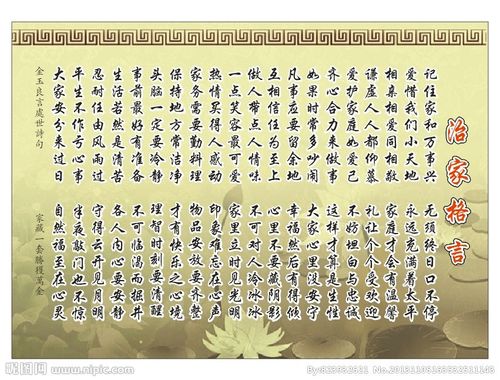 治家格言
记住家和万事兴
无须终日口不停
爱惜我们小天地
永远充满着太平
相亲相爱同相敬
家庭才会有温馨
谦虚人人都仰慕
礼让个个受欢迎
爱护家庭如爱己
不妨坦白与忠诚
齐心合力来做事
这样才算是生性
如果时常多吵闹
大家心里没安宁
凡事应要留余地
幸福然后有得倾
互相信任为至上
心里不要藏阴影
做人带点人情味
不可对人冷冰冰
一点笑容最可爱
家里立时见光明
热情买得人感动
印象难忘在心声
家务需要勤料理
物品安放要齐整
保持地方常洁净
才有快乐之心境
头脑一定要冷静
理智时刻要清醒
事前最好有准备
不可临渴而掘井
生活若然是清苦
各人内心要安静
忍耐任由风雨过
守得云开见月明
平生不作亏心事
半夜敲门也不惊
大家安分来过日
自然福至在心灵
金玉良言處世詩句
家藏一套勝獲萬金
昵图网
www.nipic.com